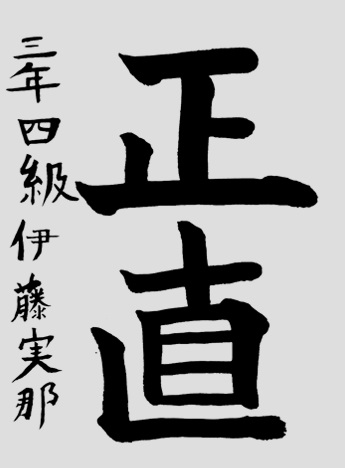 正直
三年四級伊藤実那